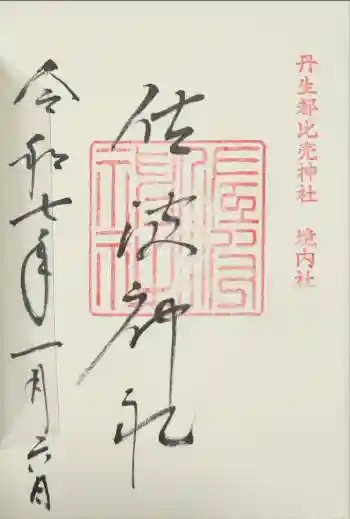 丹生都比売神社 境内社
佐波神社
令和七年一月六日